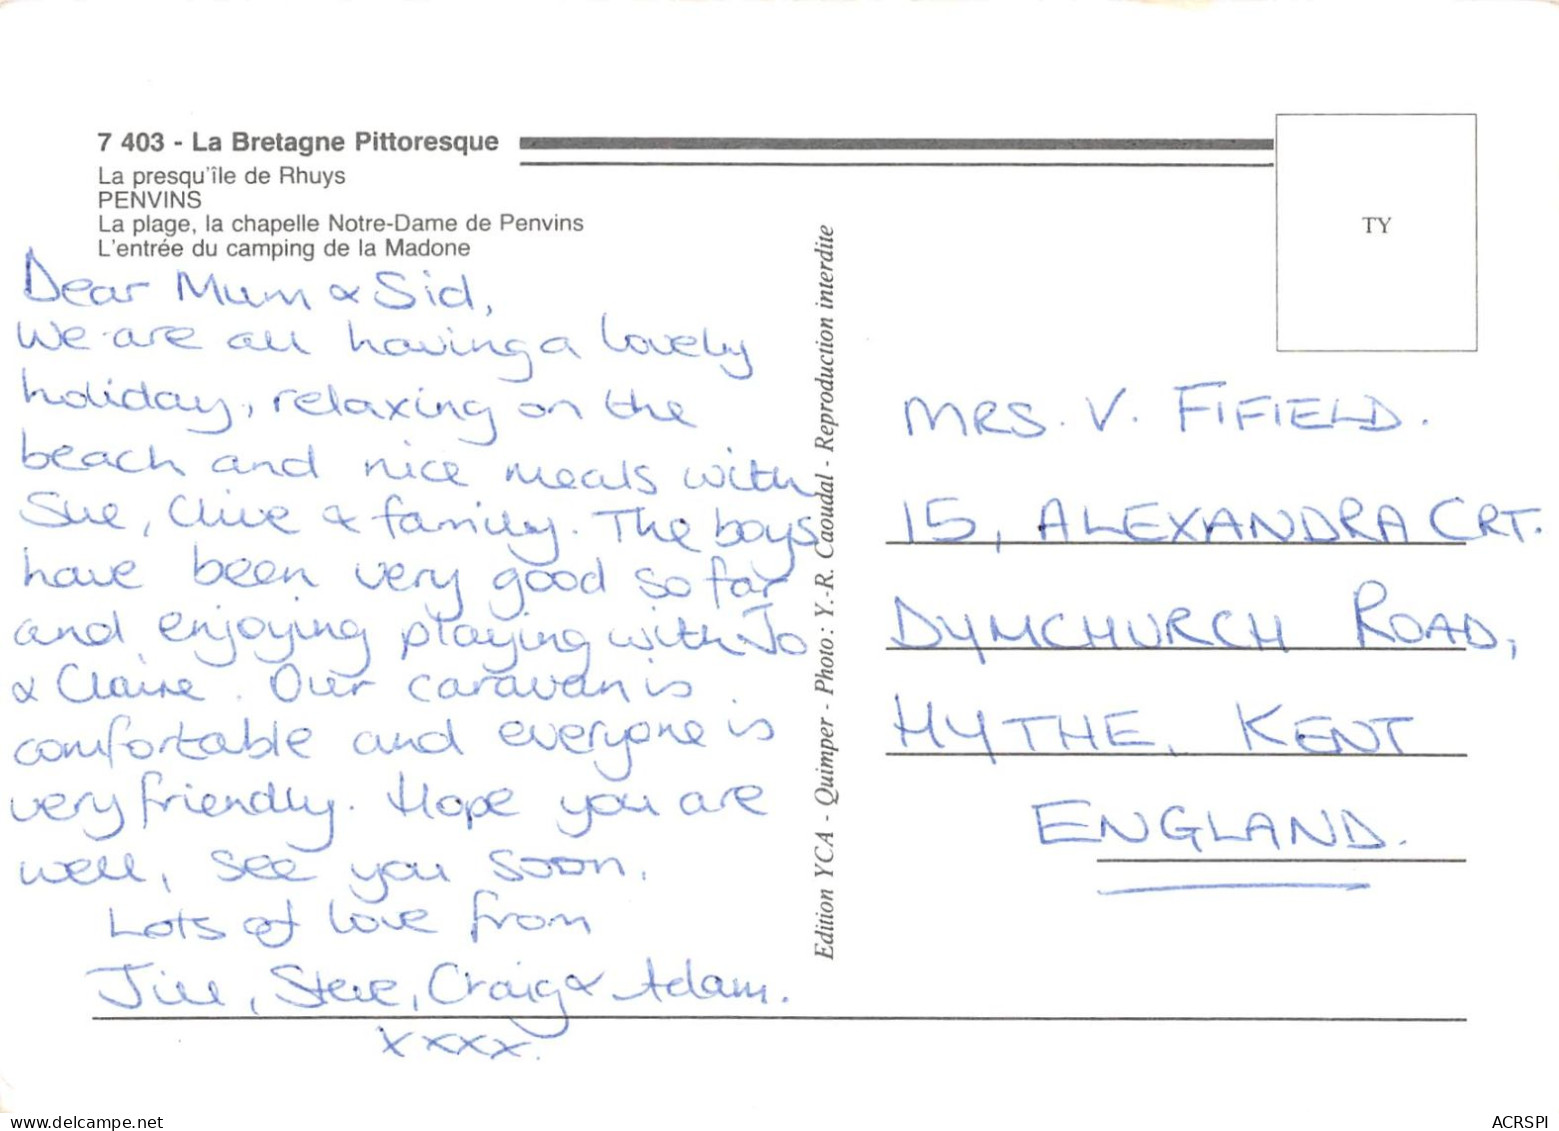 7 403 - La Bretagne Pittoresque
La presqu'île de Rhuys
PENVINS
La plage, la chapelle Notre-Dame de Penvins
L'entrée du camping de la Madone
Dear Mum & Sid,
We are all having a lovely
holiday, relaxing on the
beach and nice meals with
Sue, Clive & family. The boys
have been very good so far
and enjoying playing with Jo
& Claire. Our caravan is
comfortable and everyone is
very friendly. Hope you are
well, see you soon.
Lots of love from
Jill, Steve, Craig & Adam.
xxxx.
Edition YCA - Quimper - Photo : Y.-R. Caoudal - Reproduction interdite
TY
MRS. V. FIFIELD.
15, ALEXANDRA CRT.
DYMCHURCH ROAD,
HYTHE, KENT
ENGLAND.
delcampe.net
ACRSPI